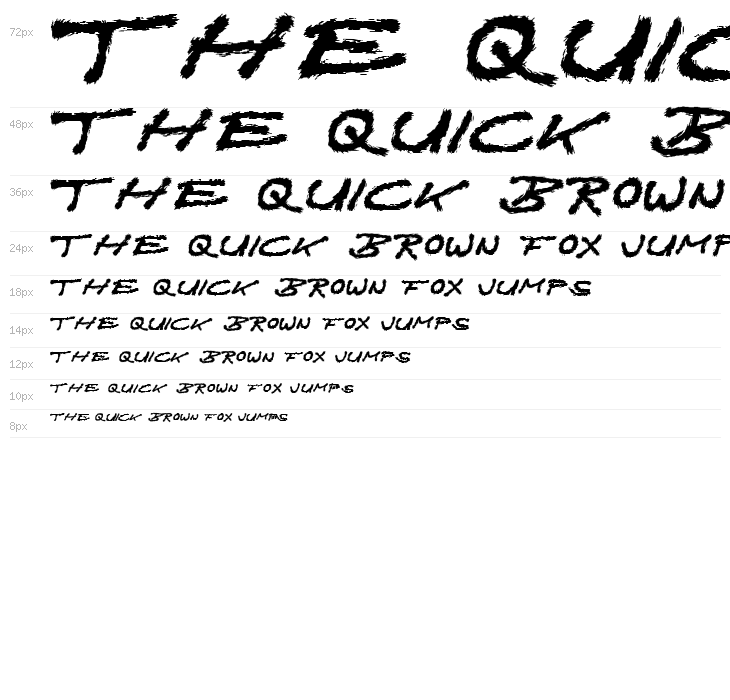 72px THE QUIC
48px THE QUICK B
36px THE QUICK BROWN
24px THE QUICK BROWN FOX JUMP
18px THE QUICK BROWN FOX JUMPS
14px THE QUICK BROWN FOX JUMPS
12px THE QUICK BROWN FOX JUMPS
10px THE QUICK BROWN FOX JUMPS
8px THE QUICK BROWN FOX JUMPS